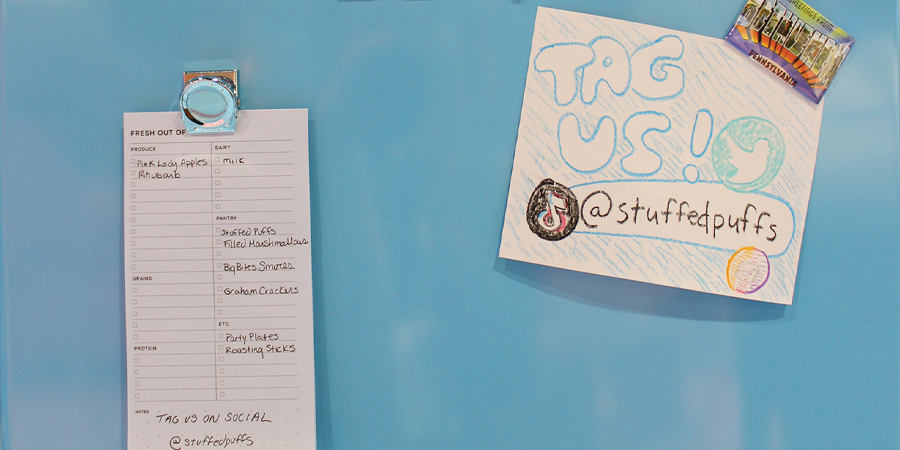 FRESH OUT OF
PRODUCE
Pink Lady Apples
Rhubarb
GRAINS
PROTEIN
DAIRY
Milk
PANTRY
Stuffed Puffs
Filled Marshmallows
Big Bites Smores
Graham Crackers
ETC
Party Plates
Roasting Sticks
NOTES
TAG US ON SOCIAL
@stuffedpuffs
TAG
US!
@stuffedpuffs
GREETINGS FROM
PENNSYLVANIA